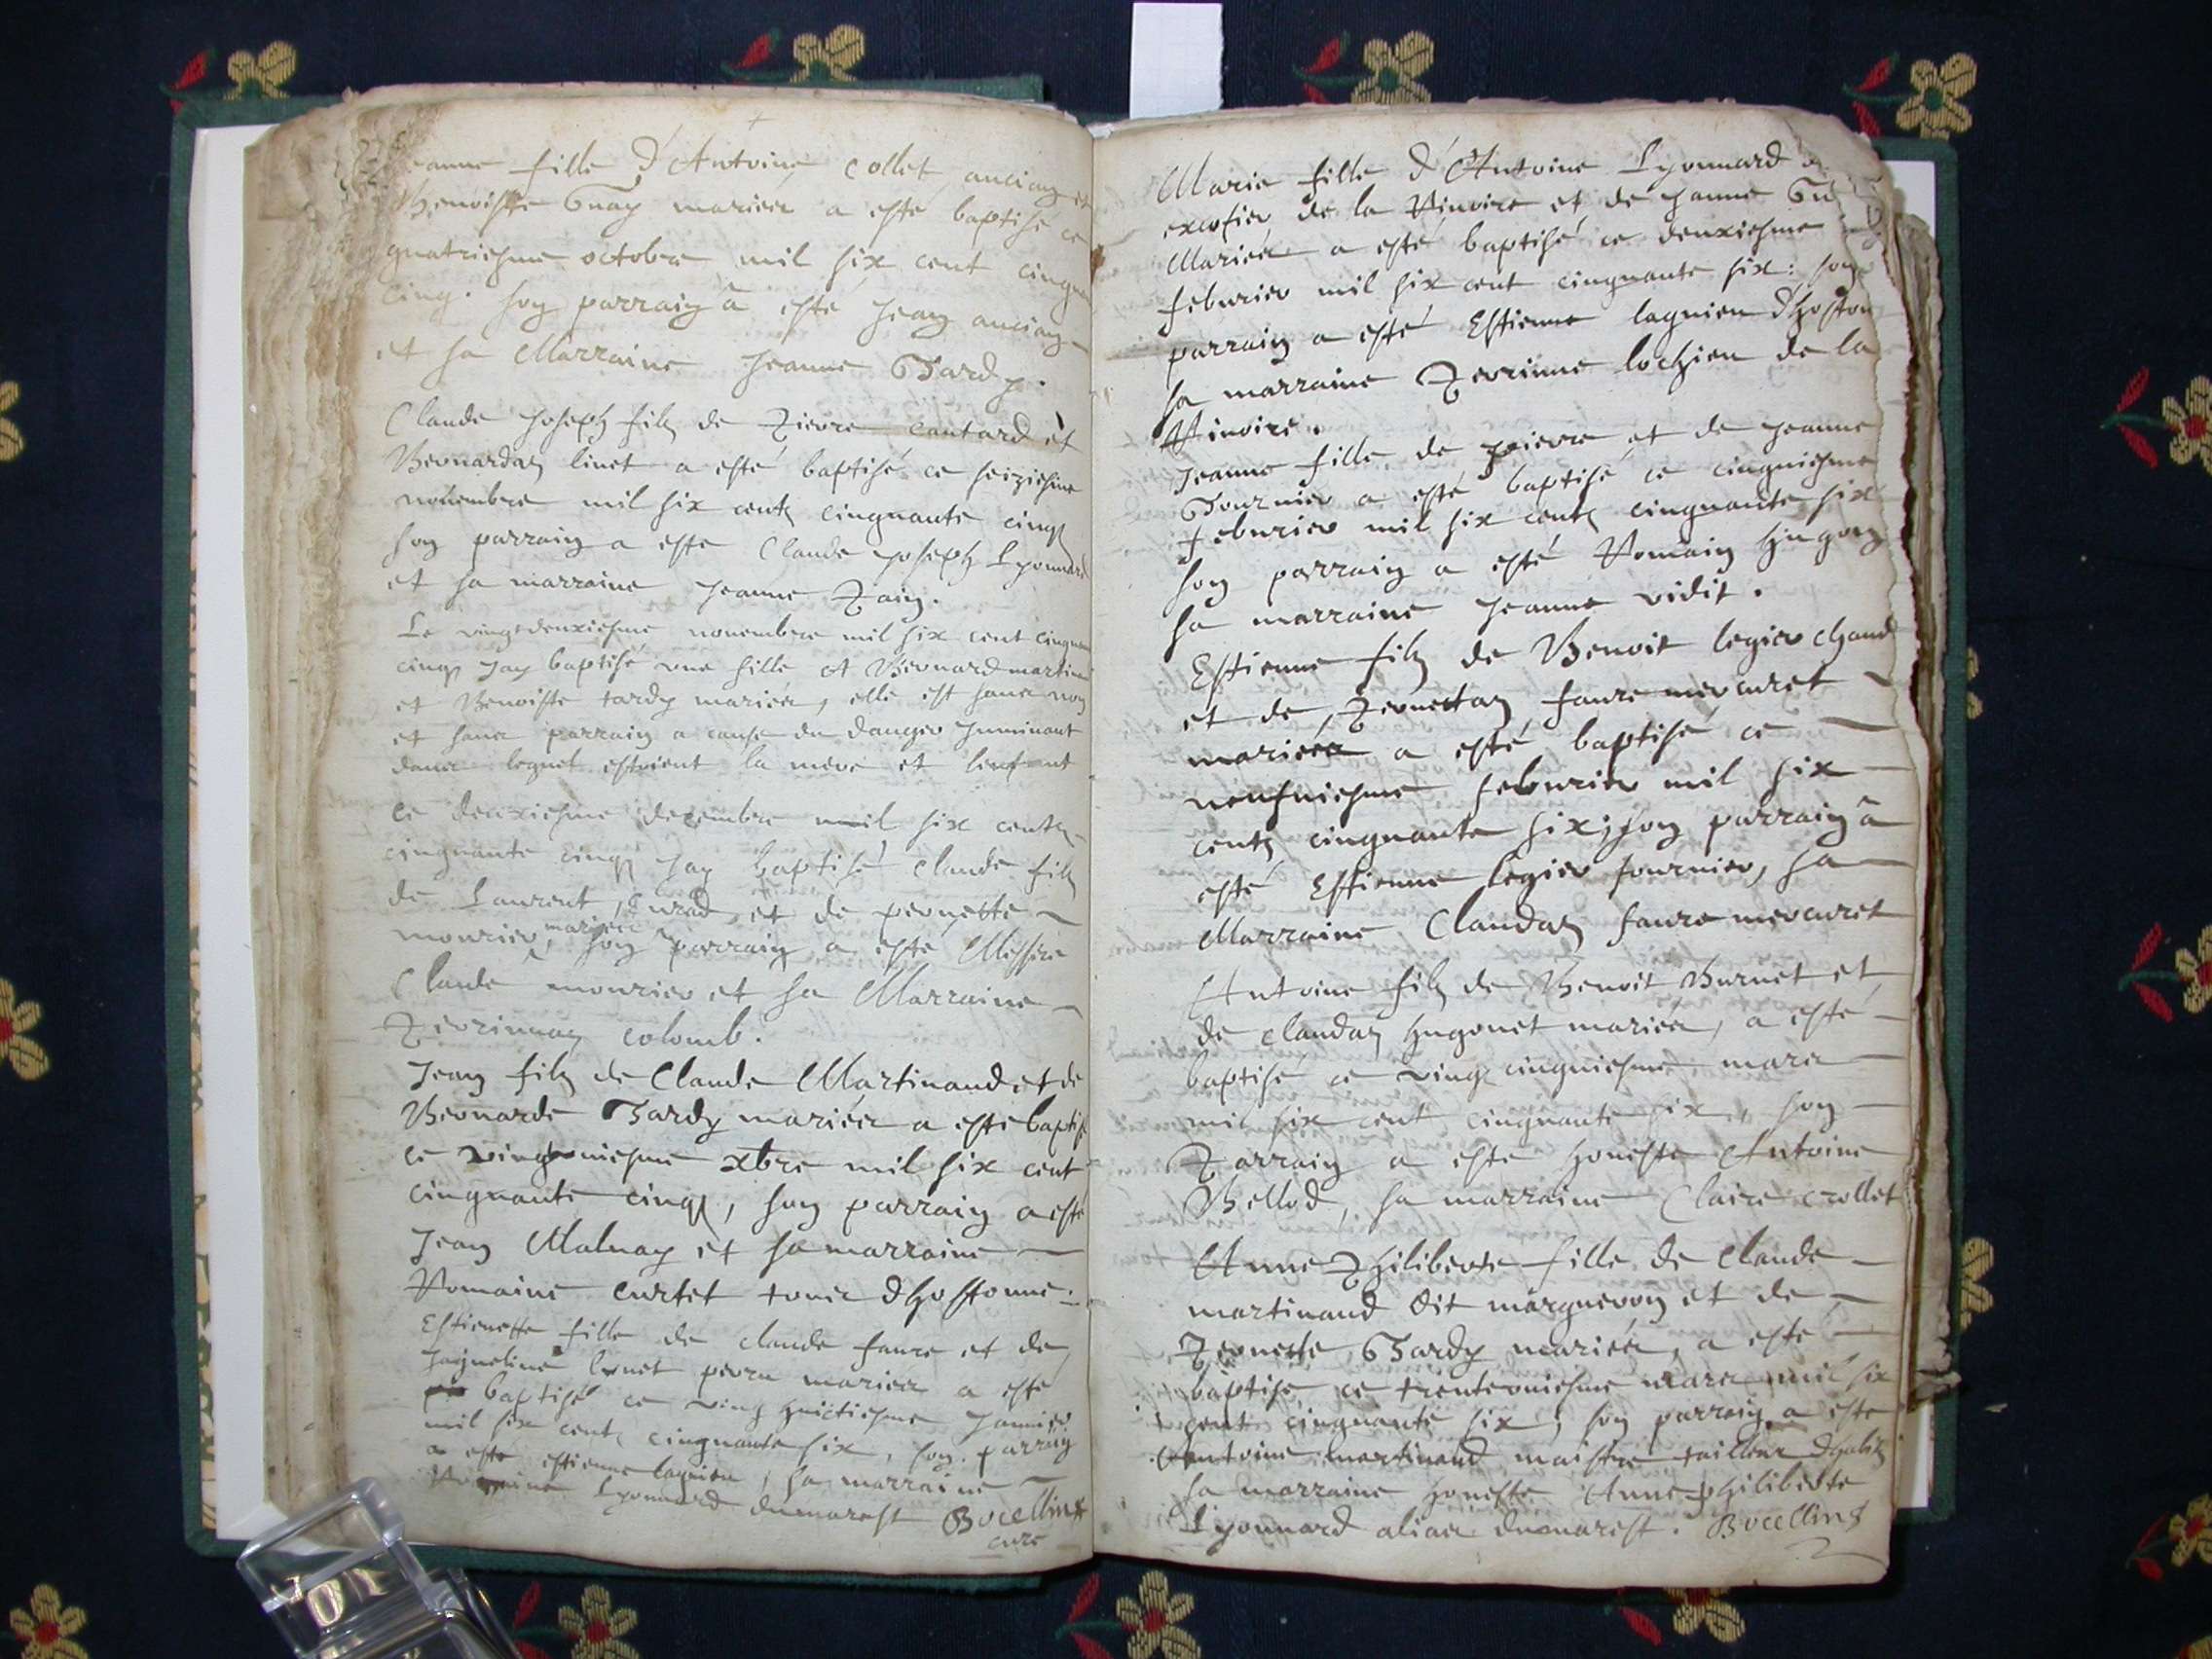 Jeanne fille d'Antoine Collet anciang et
Benoiste Guay mariés a esté baptisé ce
quatriesme octobre mil six cent cinqua
cinq. son parraing a esté Jean anciang
et sa Marraine Jeanne Tardy.
Claude Joseph filz de Pierre Contard et
Bernardaz linet a esté baptisé ce seiziesme
nouembre mil six centz cinquante cinq
son parraing a esté Claude Joseph Lyonnard
et sa marraine Jeanne Pain.
Le vingtdeuxiesme nouembre mil six cent cinquan
cinq Jay baptisé vne fille a Bernard martin
et Benoiste tardy mariés, elle est sans nom
et sans parraing a cause du danger Imminant
dans lequel estoient la mere et lenfant
ce deuxiesme decembre mil six centz
cinquante cinq Jay baptisé Claude filz
de Laurent Curad et de pernette
mourier, mariés son parraing a esté Messire
Claude mourier et sa Marraine
Perrinaz colomb.
Jean filz de Claude Martinand et de
Bernarde Tardy mariés a esté baptisé
ce vingtroniesme xbre mil six cent
cinquante cinq, son parraing a esté
Jean Malnay et sa marraine
Romaine Curtet tous dhostonne.
Estienette fille de claude faure et de
Jaqueline linet perra mariés a esté
baptisé ce vingt huictiesme Janvier
mil six centz cinquante six, son parraing
a esté estienne lagnieu, sa marraine
Romaine Lyonnard dumarest Bocellins
curé
Marie fille d'Antoine Lyonnard
excofier de la Riuoire et de Jeanne Gu
Mariés a esté baptisé ce deuxiesme
feburier mil six cent cinquante six: son
parraing a esté Estienne lagnieu d'hoston
sa marraine Perrinne lochieu de la
Riuoire.
Jeanne fille de pierre et de Jeanne
Tournier a esté baptisé ce cinquiesme
feburier mil six centz cinquante six
son parraing a esté Romain hugon
sa marraine Jeanne vidit.
Estienne filz de Benoit legier chand
et de Pernettaz faure mercuret
mariés a esté baptisé ce
neufuiesme feburier mil six
centz cinquante six; son parraing a
esté Estienne legier fournier, sa
Marraine Claudaz faure mercuret
Antoine filz de Benoit Burnet et
de claudaz hugonet mariés, a esté
baptisé ce vingt cinquiesme mars
mil six cent cinquante six, son
Parraing a esté honeste Antoine
Bellod, sa marraine Claire crollet
Anne Philiberte fille de claude
martinand dit margueron et de
Pernette Tardy mariés, a esté
baptisé ce trenteuniesme mars mil six
cent cinquante six, son parraing a esté
Antoine martinand maistre tailleur dhabitz
sa marraine honeste Anne philiberte
Lyonnard alias dumarest. Bocellins